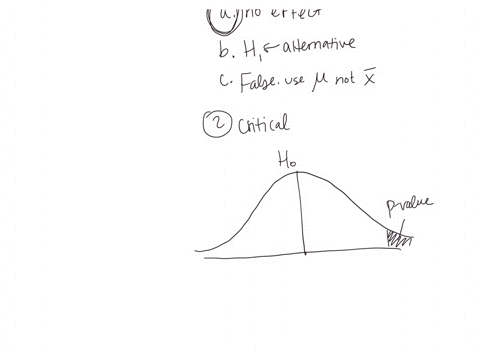 a. no effect
b. H₁ ← alternative
c. False. use μ not x̄
② Critical
H₀
pvalue